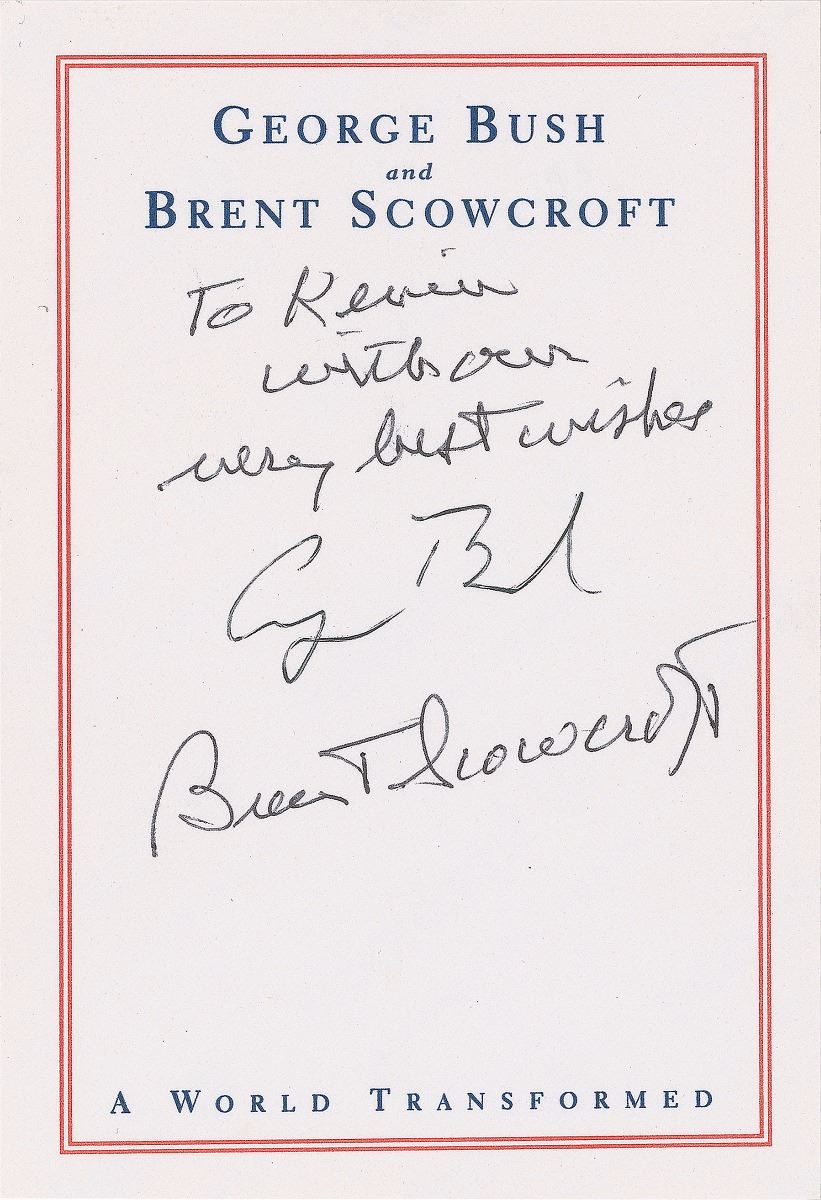 GEORGE BUSH
and
BRENT SCOWCROFT
To Kevin
with our
very best wishes
G Bush
Brent Scowcroft
A WORLD TRANSFORMED